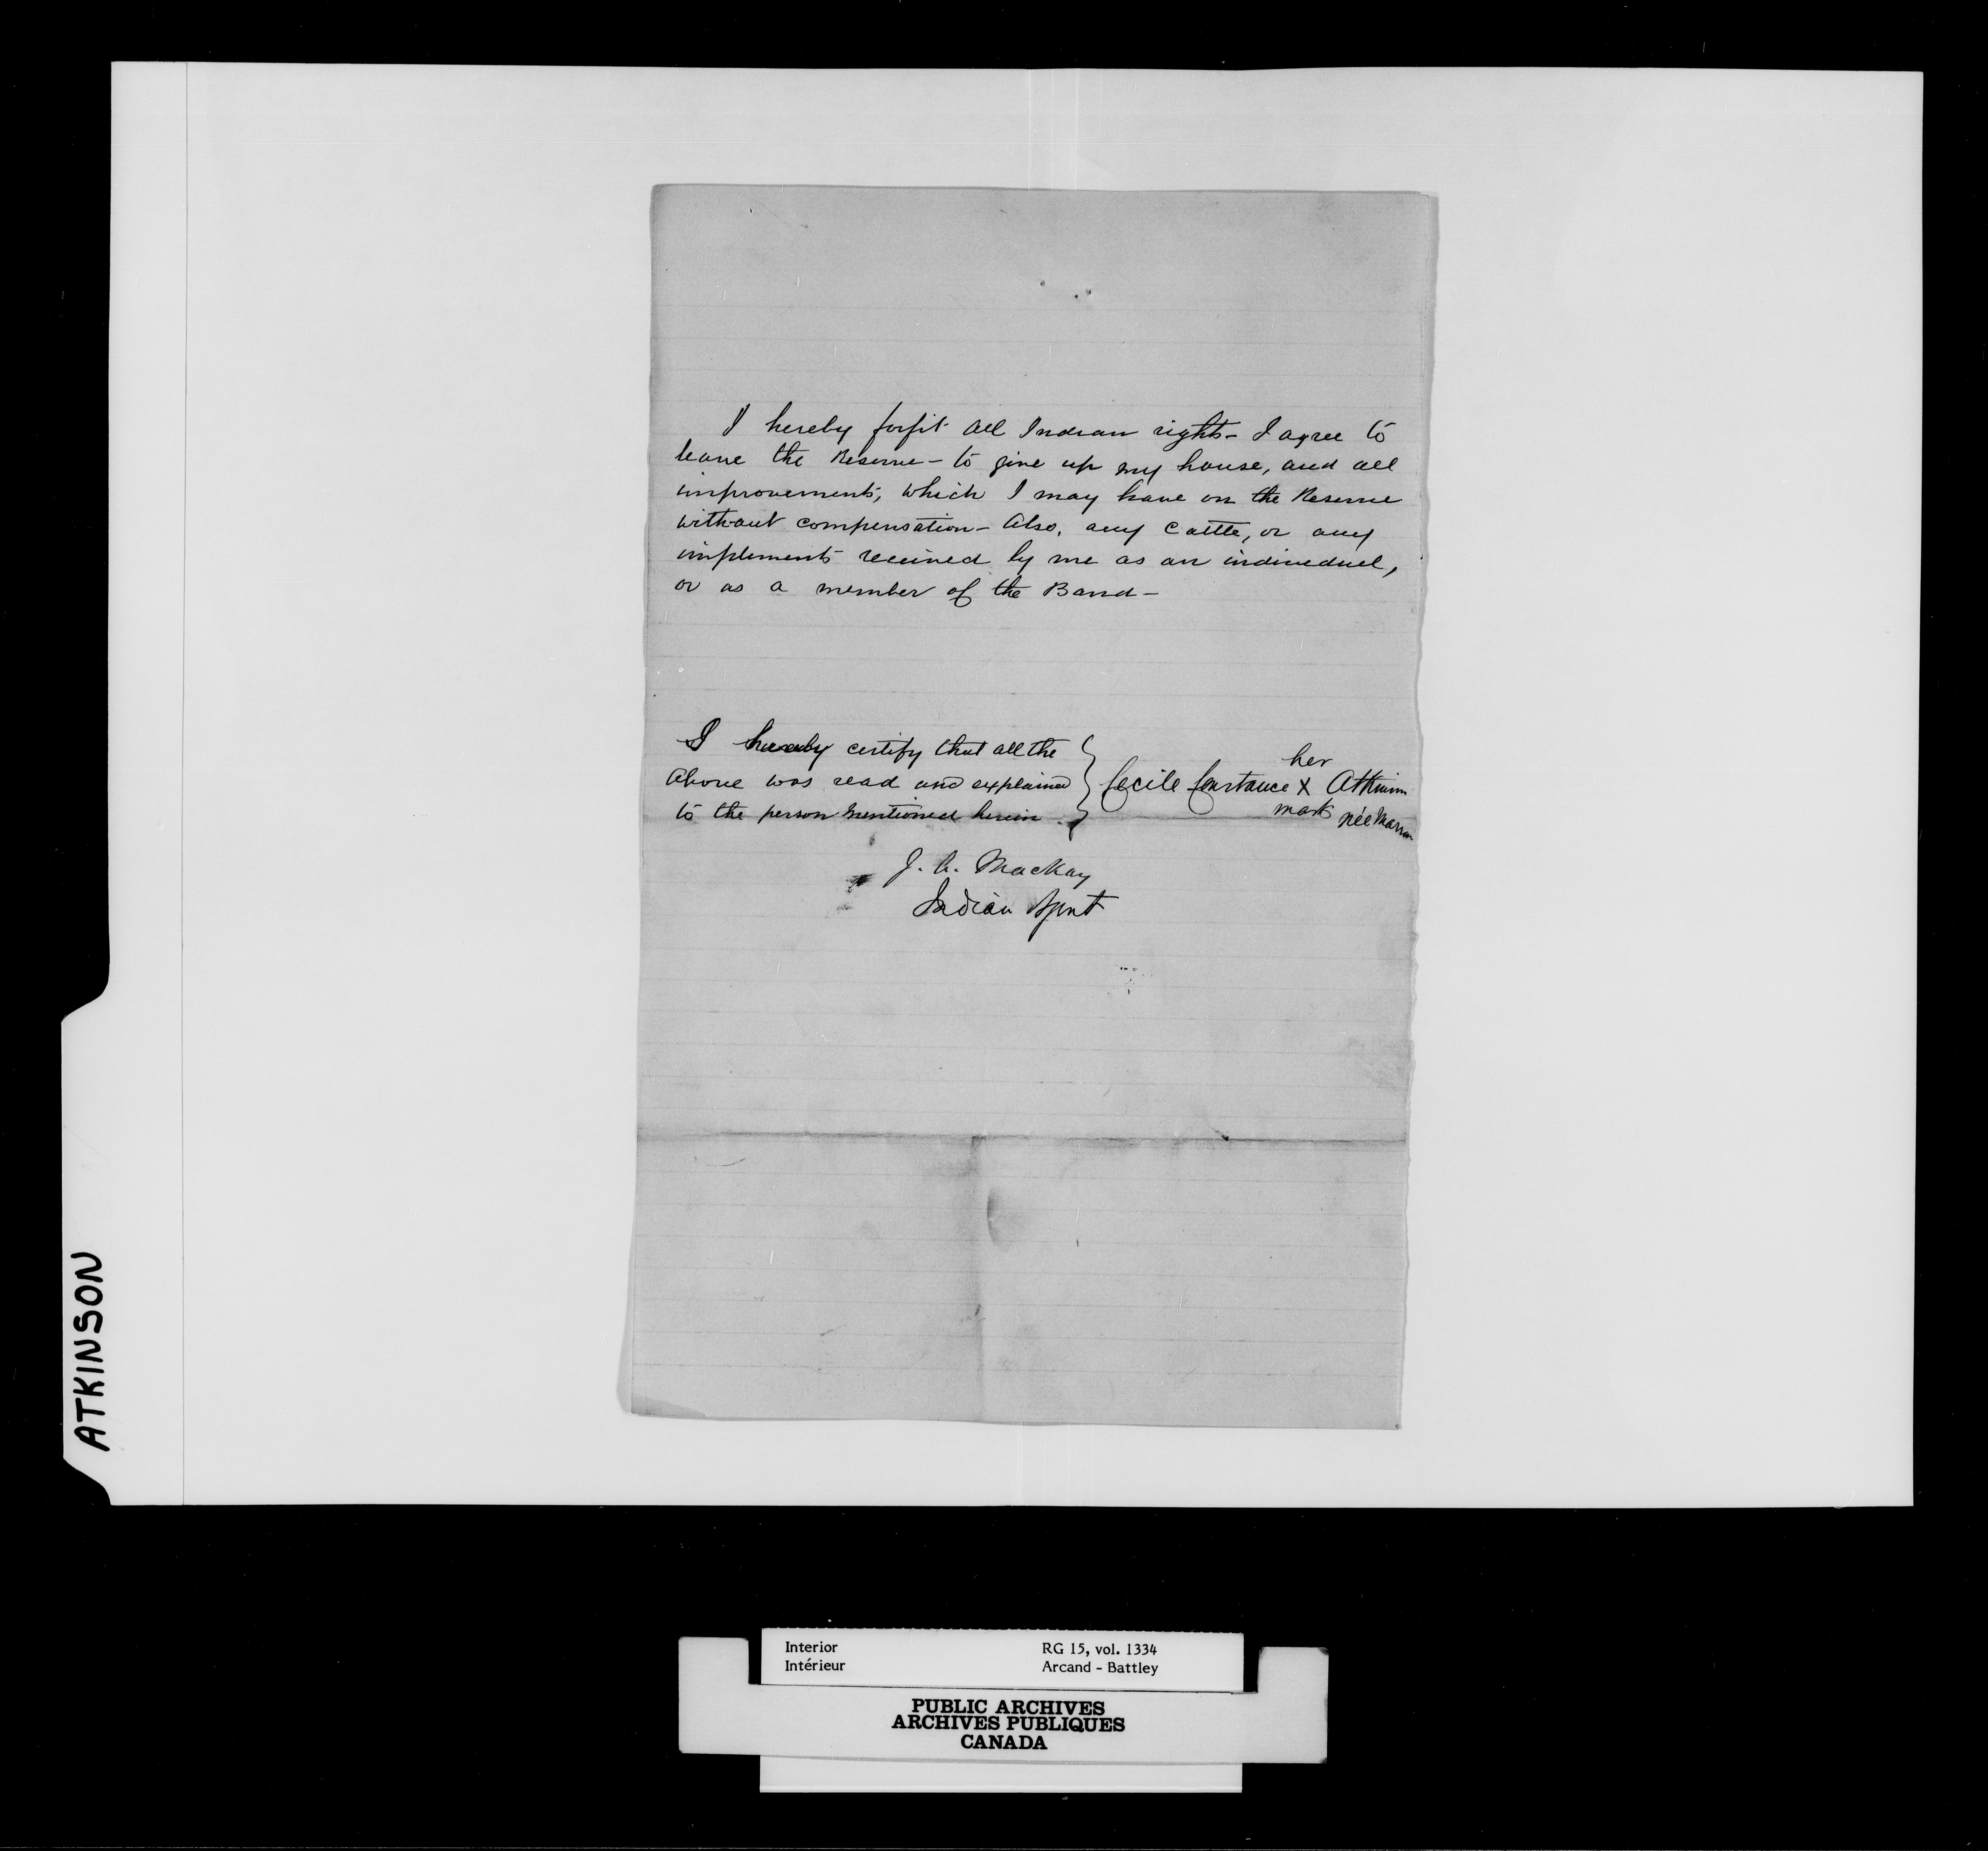 I hereby forfit all Indian rights - I agree to
leave the Reserve - to give up my house, and all
improvements, which I may have on the Reserve
without compensation - Also, any cattle, or any
impliments received by me as an individuel,
or as a member of the Band -
I hereby certify that all the
above was read and explained
to the person mentioned herein
her
Cecile Constance X Atkinson
mark née
J. A. MacKay
Indian Agent
ATKINSON
Interior RG 15, vol. 1334
Intérieur Arcand - Battley
PUBLIC ARCHIVES
ARCHIVES PUBLIQUES
CANADA